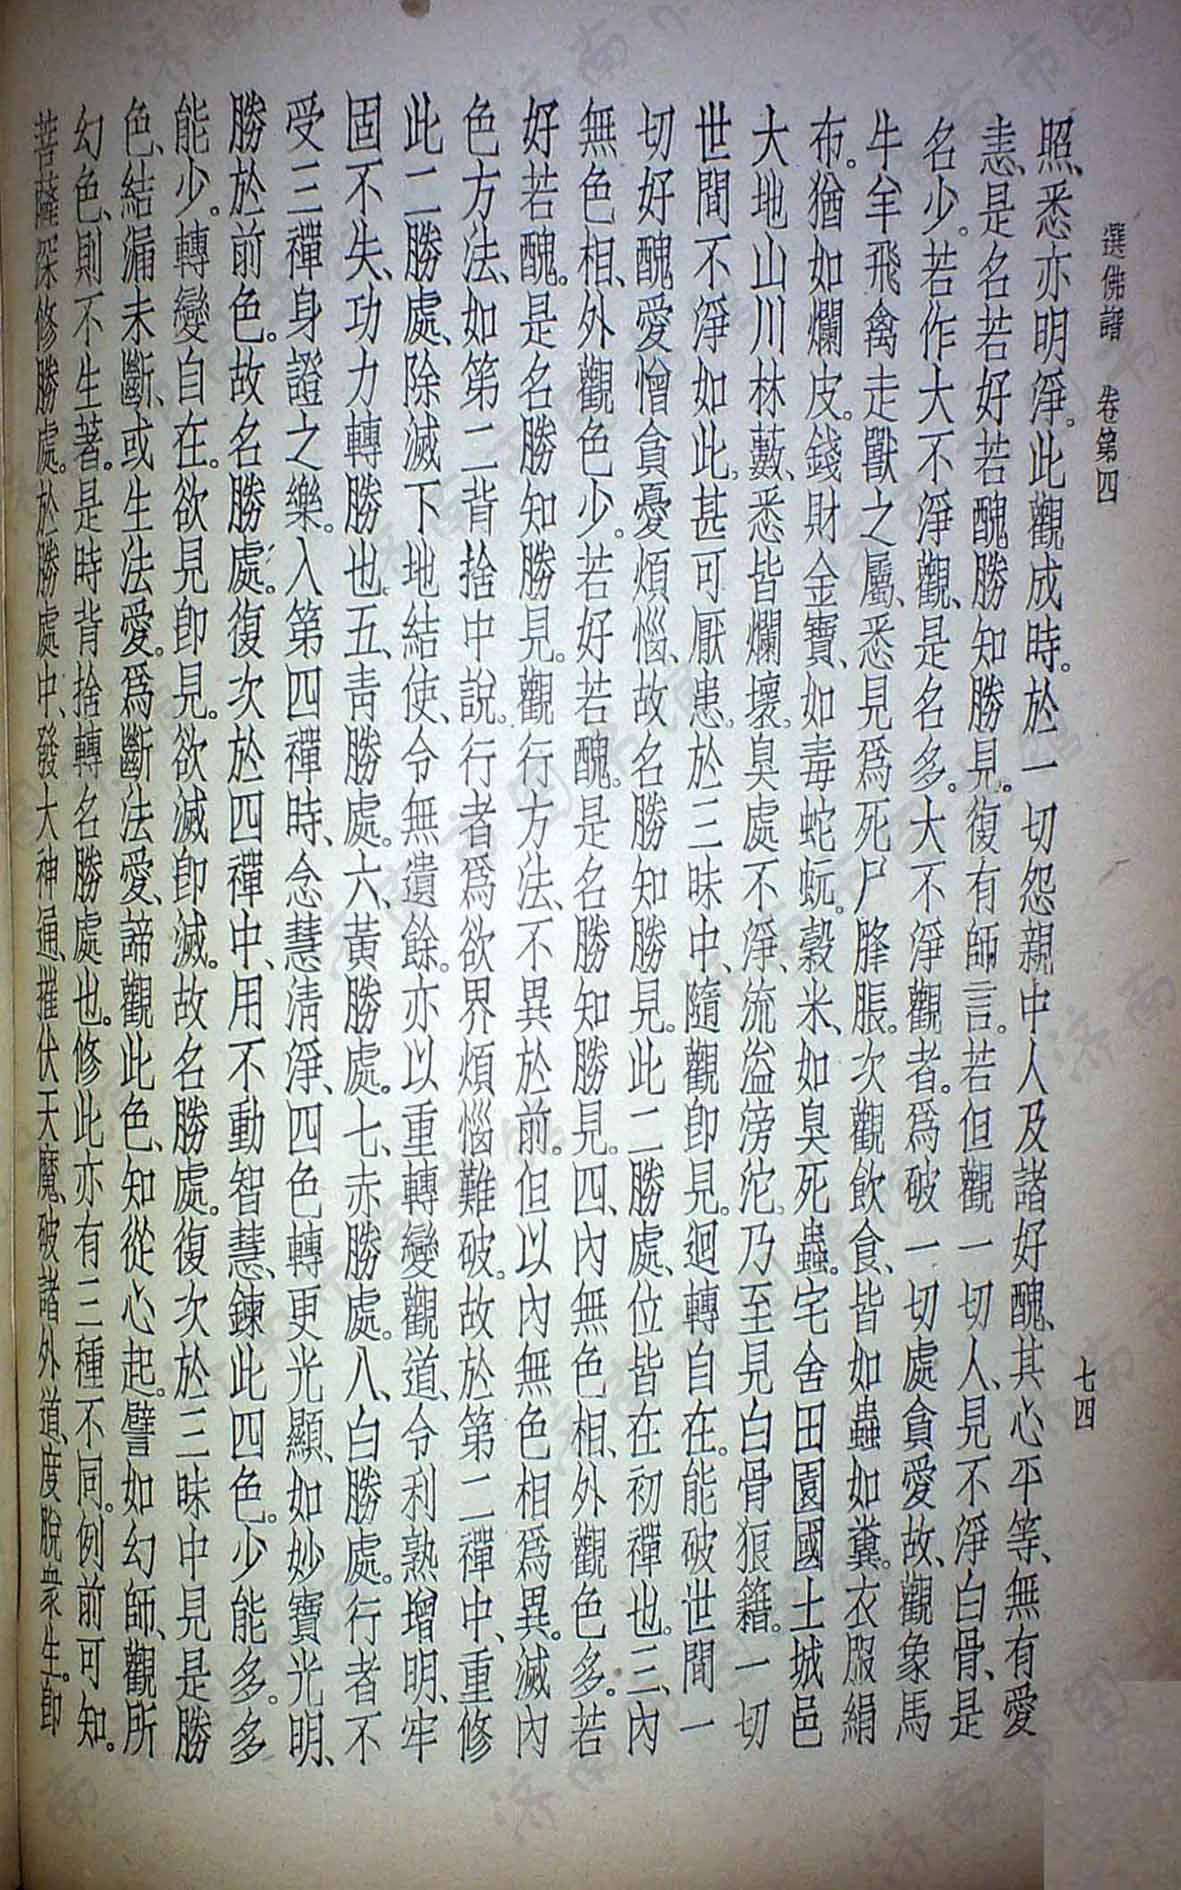 選佛譜　卷第四　七四
照、悉亦明淨。此觀成時。於一切怨親中人及諸好醜、其心平等、無有愛
恚、是名若好若醜勝知勝見。復有師言。若但觀一切人、見不淨白骨、是
名少。若作大不淨觀、是名多。大不淨觀者。爲破一切處貪愛故、觀象馬
牛羊飛禽走獸之屬、悉見爲死尸膖脹。次觀飲食、皆如蟲如糞。衣服絹
布。猶如爛皮。錢財金寶、如毒蛇蚖。穀米、如臭死蟲。宅舍田園國土城邑
大地山川林藪、悉皆爛壞。臭處不淨、流溢滂沱。乃至見白骨狼籍。一切
世間不淨如此。甚可厭患。於三昧中、隨觀卽見。迴轉自在。能破世間一
切好醜愛憎貪憂煩惱、故名勝知勝見。此二勝處、位皆在初禪也。三、內
無色相、外觀色少。若好若醜。是名勝知勝見。四、內無色相、外觀色多。若
好若醜。是名勝知勝見。觀行方法、不異於前。但以內無色相爲異。滅內
色方法、如第二背捨中說。行者爲欲界煩惱難破。故於第二禪中、重修
此二勝處、除滅下地結使、令無遺餘。亦以重轉變觀道、令利熟增明、牢
固不失、功力轉勝也。五、靑勝處。六、黃勝處。七、赤勝處。八、白勝處。行者不
受三禪身證之樂。入第四禪時、念慧淸淨、四色轉更光顯、如妙寶光明、
勝於前色。故名勝處。復次於四禪中、用不動智慧、鍊此四色。少能多。多
能少。轉變自在。欲見卽見。欲滅卽滅。故名勝處。復次於三昧中見是勝
色、結漏未斷、或生法愛。爲斷法愛、諦觀此色、知從心起。譬如幻師、觀所
幻色、則不生著。是時背捨轉名勝處也。修此亦有三種不同。例前可知。
菩薩深修勝處。於勝處中、發大神通、摧伏天魔、破諸外道、度脫衆生。卽